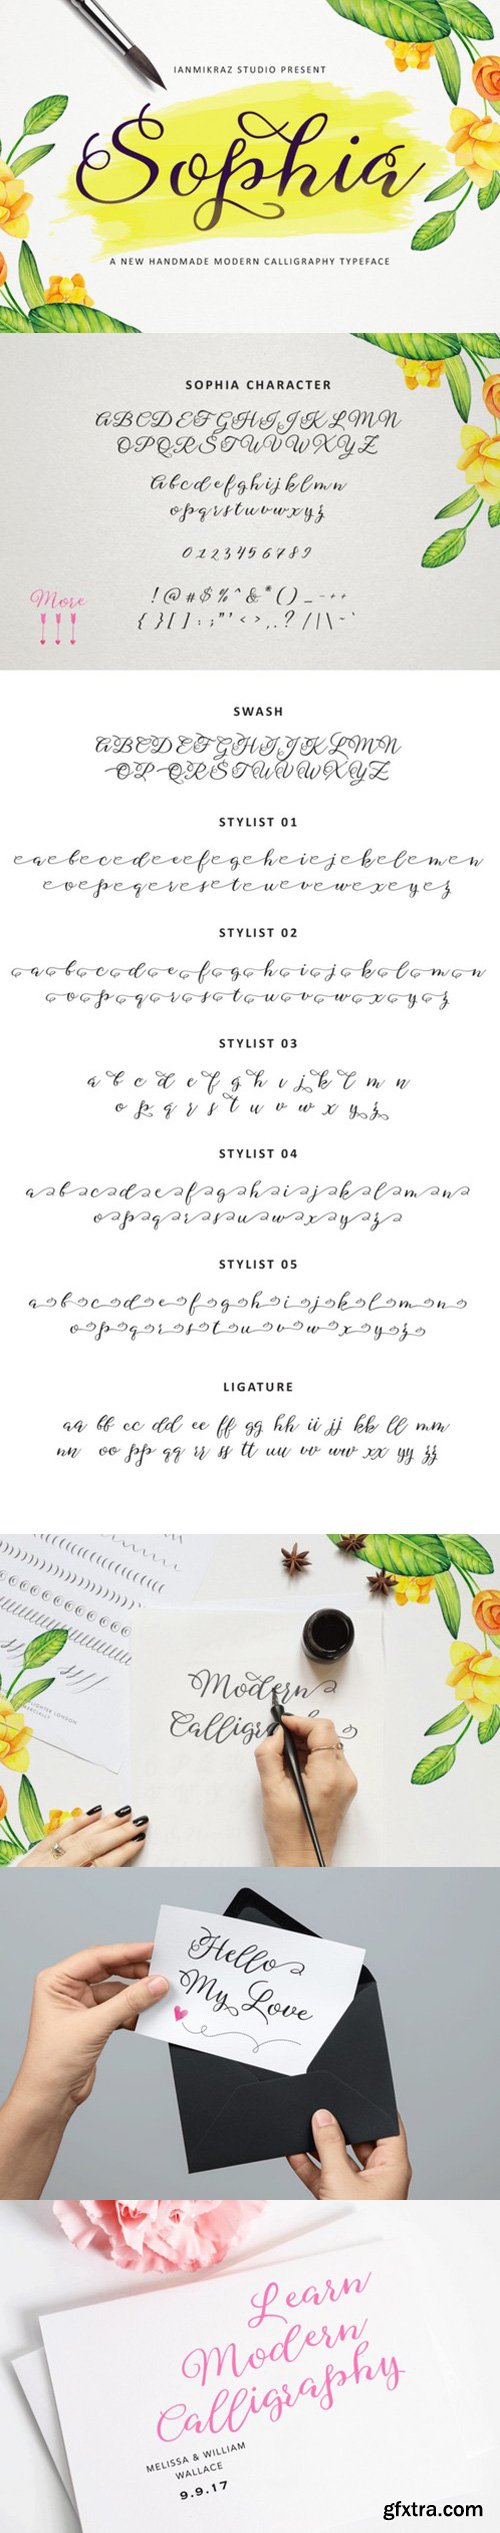 IANMIKRAZ STUDIO PRESENT
Sophia
A NEW HANDMADE MODERN CALLIGRAPHY TYPEFACE
SOPHIA CHARACTER
ABCDEFGHIJKLMN
OPQRSTUVWXYZ
Abcdefghijklmn
opqrstuvwxyz
0123456789
!@#$%^&*()_-++
{}[]:;"'<>,.?/|\~`
More
SWASH
ABCDEFGHIJKLMN
OPQRSTUVWXYZ
STYLIST 01
STYLIST 02
STYLIST 03
a b c d e f g h i j k l m n
o p q r s t u v w x y z
STYLIST 04
STYLIST 05
LIGATURE
aa bb cc dd ee ff gg hh ii jj kk ll mm
nn oo pp qq rr ss tt uu vv ww xx yy zz
Modern
Hello
My Love
Learn
Modern
Calligraphy
MELISSA & WILLIAM
WALLACE
9.9.17
gfxtra.com